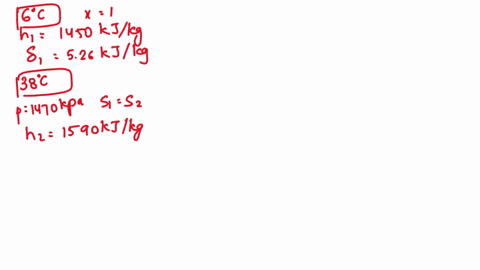 6°C x = 1
h₁ = 1450 kJ/kg
δ₁ = 5.26 kJ/kg
38°C
p = 1470kpa S₁ = S₂
h₂ = 1590 kJ/kg